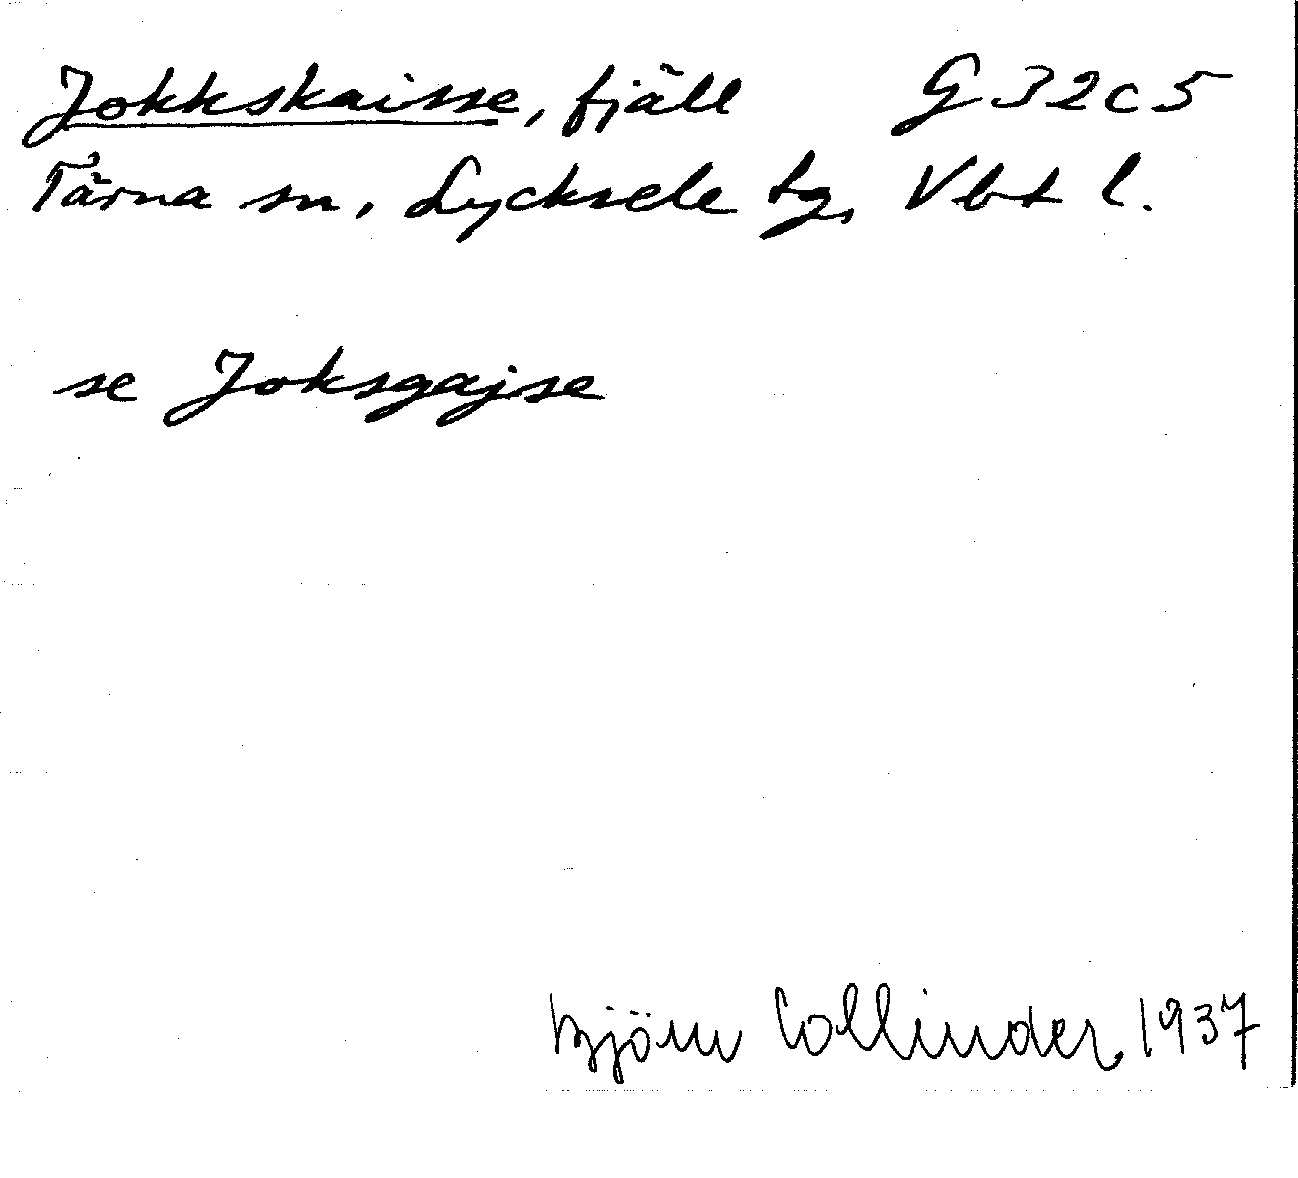 Jokkskaisse, fjäll G 32 c 5
Tärna sn, Lycksele tg, Vbt l.
se Joksgajse
Björn Collinder 1937